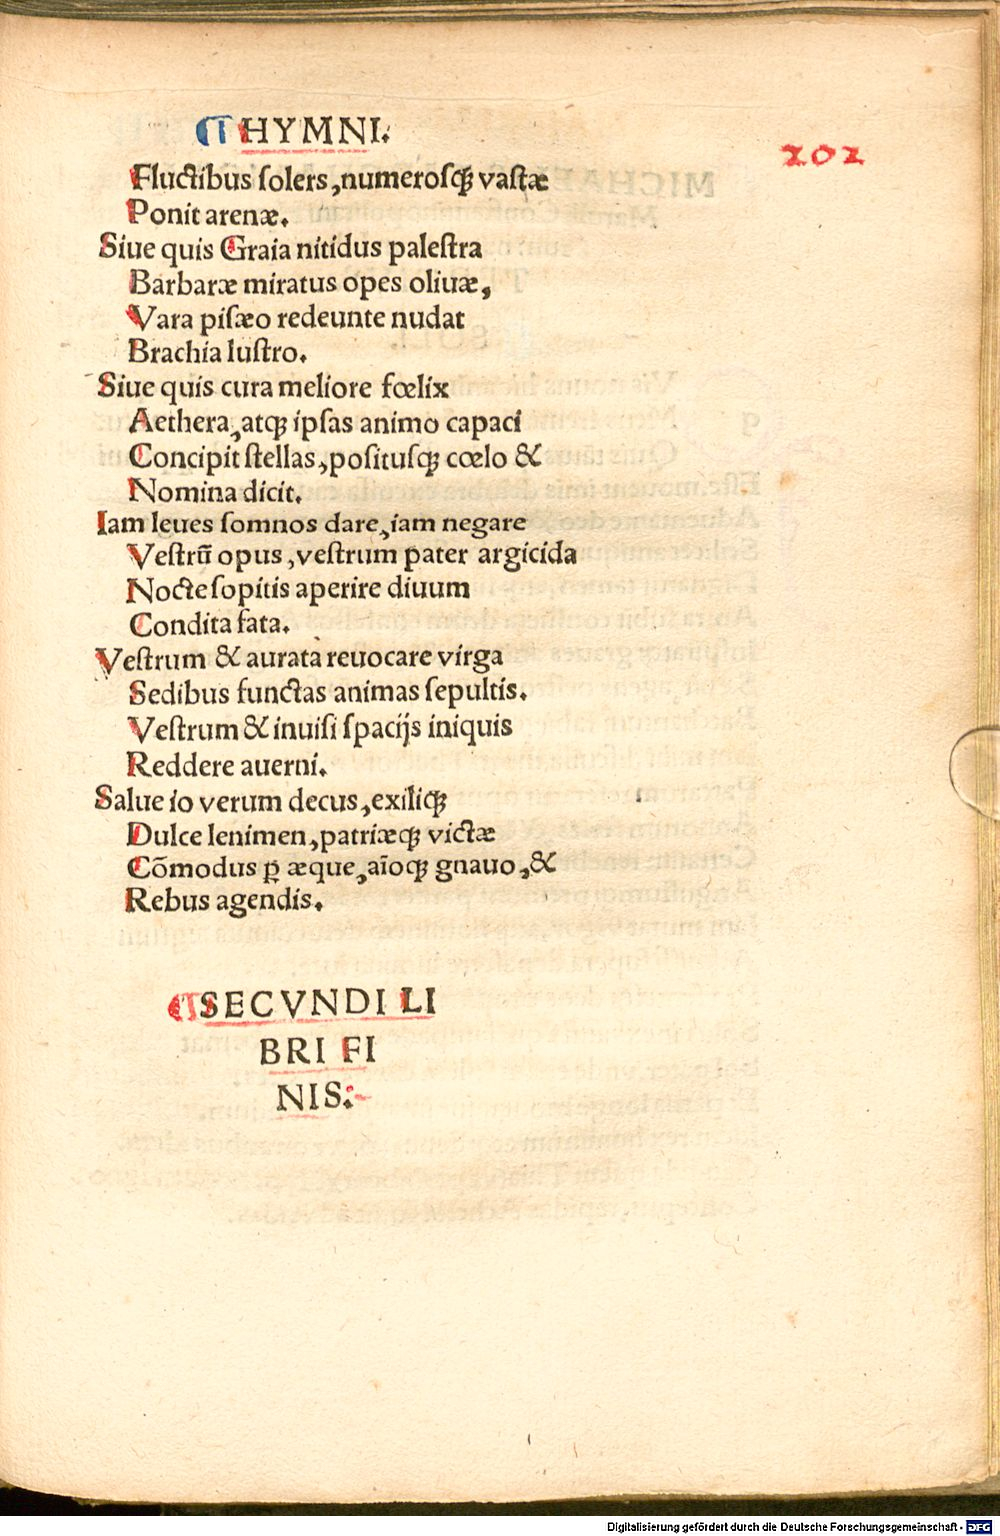 ¶ HYMNI.
202
Fluctibus solers, numerosqꝫ vastæ
Ponit arenæ.
Siue quis Graia nitidus palestra
Barbaræ miratus opes oliuæ,
Vara pisæo redeunte nudat
Brachia lustro.
Siue quis cura meliore fœlix
Aethera, atqꝫ ipsas animo capaci
Concipit stellas, positusqꝫ cœlo &
Nomina dicit.
Iam leues somnos dare, iam negare
Vestrũ opus, vestrum pater argicida
Nocte sopitis aperire diuum
Condita fata.
Vestrum & aurata reuocare virga
Sedibus functas animas sepultis.
Vestrum & inuisi spacijs iniquis
Reddere auerni.
Salue io verum decus, exiliqꝫ
Dulce lenimen, patriæqꝫ victæ
Cõmodus ꝑ æque, aĩoqꝫ gnauo, &
Rebus agendis.
¶ SECVNDI LI
BRI FI
NIS:-
Digitalisierung gefördert durch die Deutsche Forschungsgemeinschaft - DFG